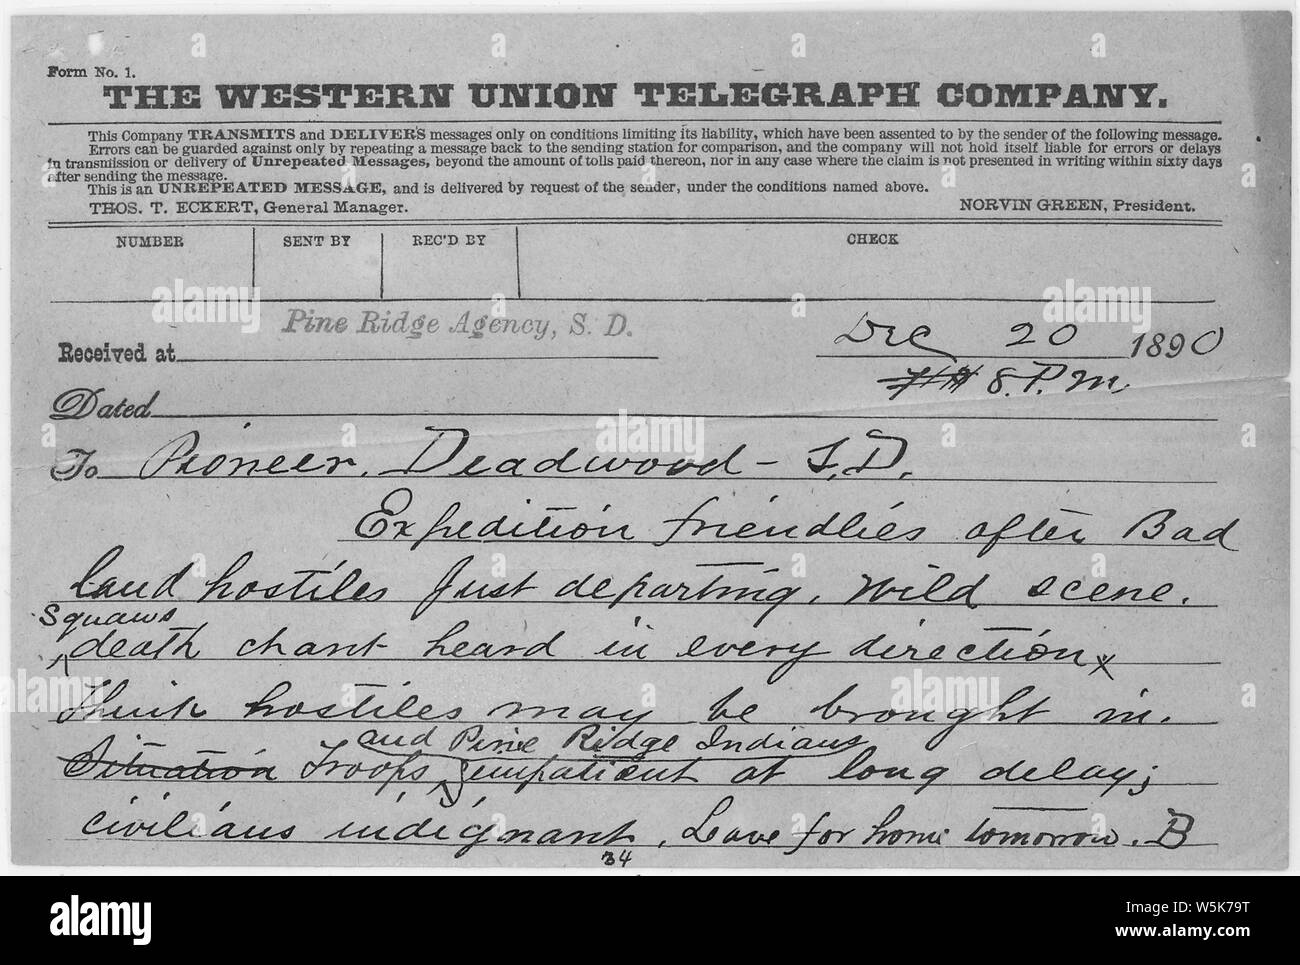 Form No. 1.
THE WESTERN UNION TELEGRAPH COMPANY.
This Company TRANSMITS and DELIVERS messages only on conditions limiting its liability, which have been assented to by the sender of the following message.
Errors can be guarded against only by repeating a message back to the sending station for comparison, and the company will not hold itself liable for errors or delays
in transmission or delivery of Unrepeated Messages, beyond the amount of tolls paid thereon, nor in any case where the claim is not presented in writing within sixty days
after sending the message.
This is an UNREPEATED MESSAGE, and is delivered by request of the sender, under the conditions named above.
THOS. T. ECKERT, General Manager. NORVIN GREEN, President.
NUMBER SENT BY REC'D BY CHECK
Pine Ridge Agency, S. D.
Received at Dec 20 1890
8 P.M.
Dated
To Pioneer, Deadwood - S.D.
Expedition friendlies after Bad
land hostiles just departing. Wild scene.
Squaws
death chant heard in every direction x
Think hostiles may be brought in.
and Pine Ridge Indians
Situation Troops, impatient at long delay;
civilians indignant. Leave for home tomorrow. B
34
alamy
Image ID: W5K79T
www.alamy.com